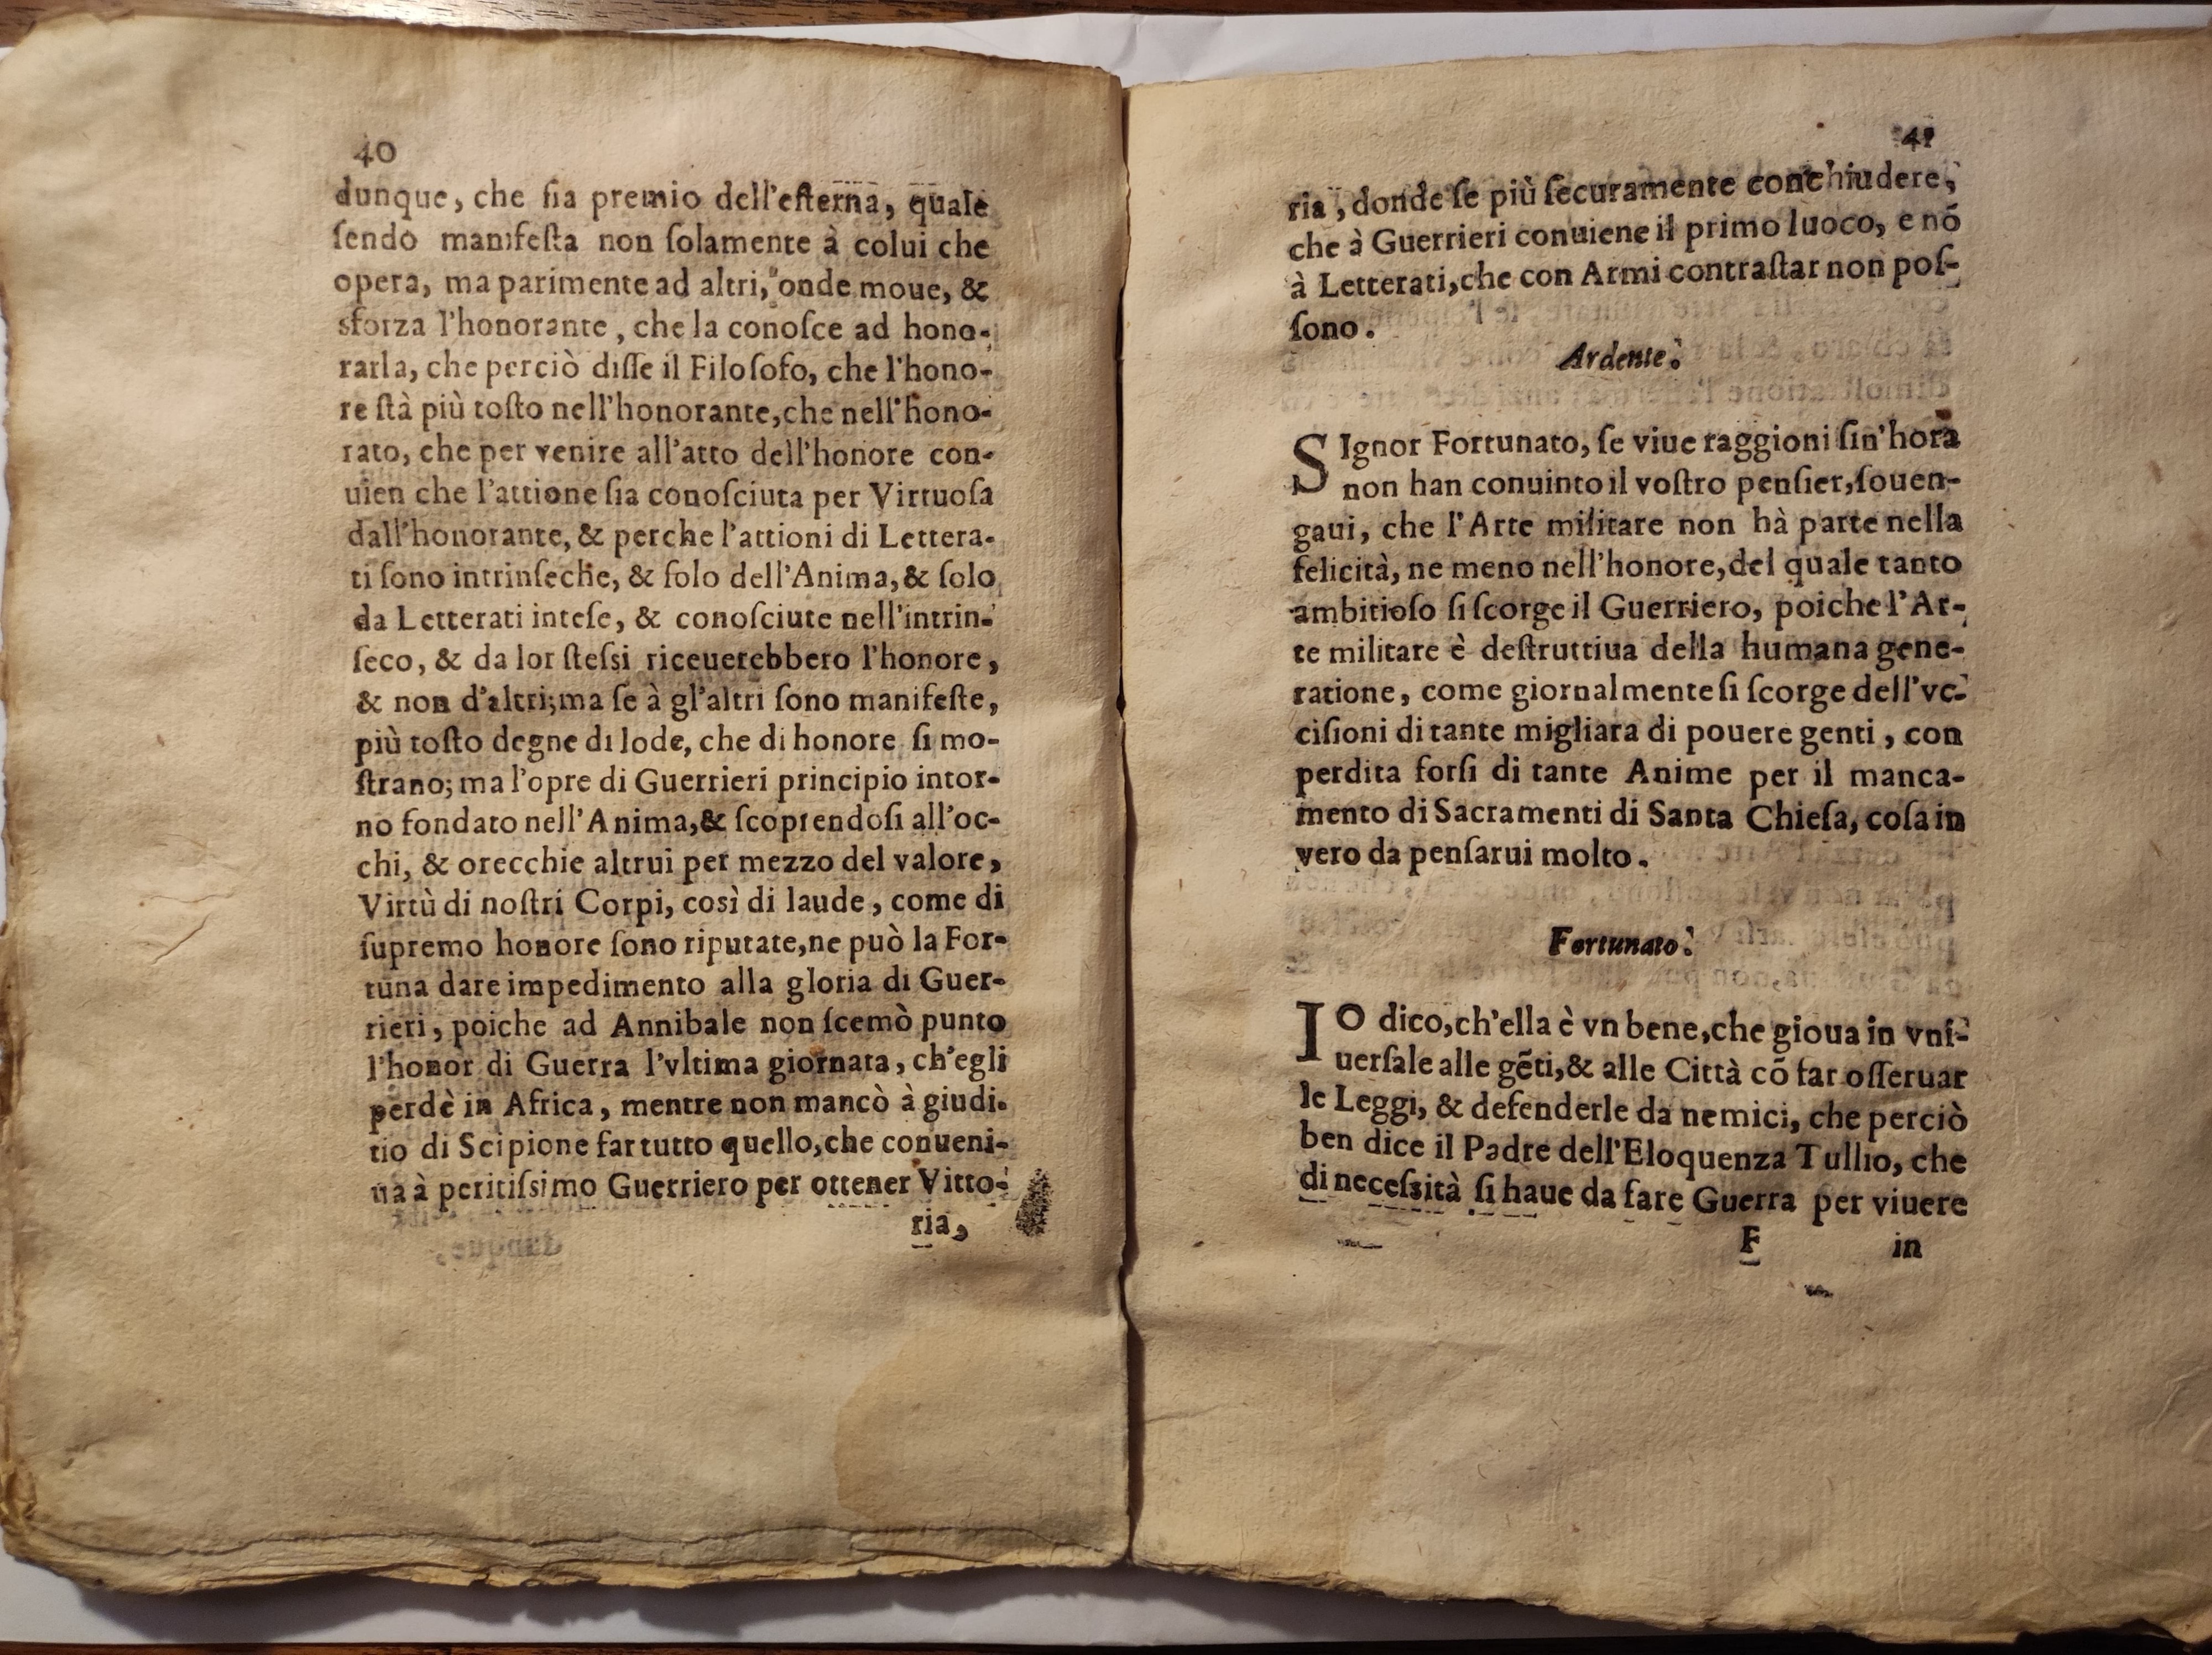 40
dunque, che ſia premio dell'eſterna, quale
ſendo manifeſta non ſolamente à colui che
opera, ma parimente ad altri, onde moue, &
sforza l'honorante, che la conoſce ad hono-
rarla, che perciò diſſe il Filoſofo, che l'hono-
re ſtà più toſto nell'honorante, che nell'hono-
rato, che per venire all'atto dell'honore con-
uien che l'attione ſia conoſciuta per Virtuoſa
dall'honorante, & perche l'attioni di Lettera-
ti ſono intrinſeche, & ſolo dell'Anima, & ſolo
da Letterati inteſe, & conoſciute nell'intrin-
ſeco, & da lor ſteſsi riceuerebbero l'honore,
& non d'altri; ma ſe à gl'altri ſono manifeſte,
più toſto degne di lode, che di honore ſi mo-
ſtrano; ma l'opre di Guerrieri principio intor-
no fondato nell'Anima, & ſcoprendoſi all'oc-
chi, & orecchie altrui per mezzo del valore,
Virtù di noſtri Corpi, così di laude, come di
ſupremo honore ſono riputate, ne può la For-
tuna dare impedimento alla gloria di Guer-
rieri, poiche ad Annibale non ſcemò punto
l'honor di Guerra l'vltima giornata, ch'egli
perdè in Africa, mentre non mancò à giudi-
tio di Scipione far tutto quello, che conueni-
ua à peritiſsimo Guerriero per ottener Vitto-
ria,
41
ria, donde ſe più ſecuramente conchiudere,
che à Guerrieri conuiene il primo luoco, e nõ
à Letterati, che con Armi contraſtar non poſ-
ſono.
Ardente.
SIgnor Fortunato, ſe viue raggioni ſin'hora
non han conuinto il voſtro penſier, ſouen-
gaui, che l'Arte militare non hà parte nella
felicità, ne meno nell'honore, del quale tanto
ambitioſo ſi ſcorge il Guerriero, poiche l'Ar-
te militare è deſtruttiua della humana gene-
ratione, come giornalmente ſi ſcorge dell'vc-
ciſioni di tante migliara di pouere genti, con
perdita forſi di tante Anime per il manca-
mento di Sacramenti di Santa Chieſa, coſa in
vero da penſarui molto.
Fortunato.
IO dico, ch'ella è vn bene, che gioua in vni-
uerſale alle gẽti, & alle Città cõ far oſſeruar
le Leggi, & defenderle da nemici, che perciò
ben dice il Padre dell'Eloquenza Tullio, che
di neceſsità ſi haue da fare Guerra per viuere
F in